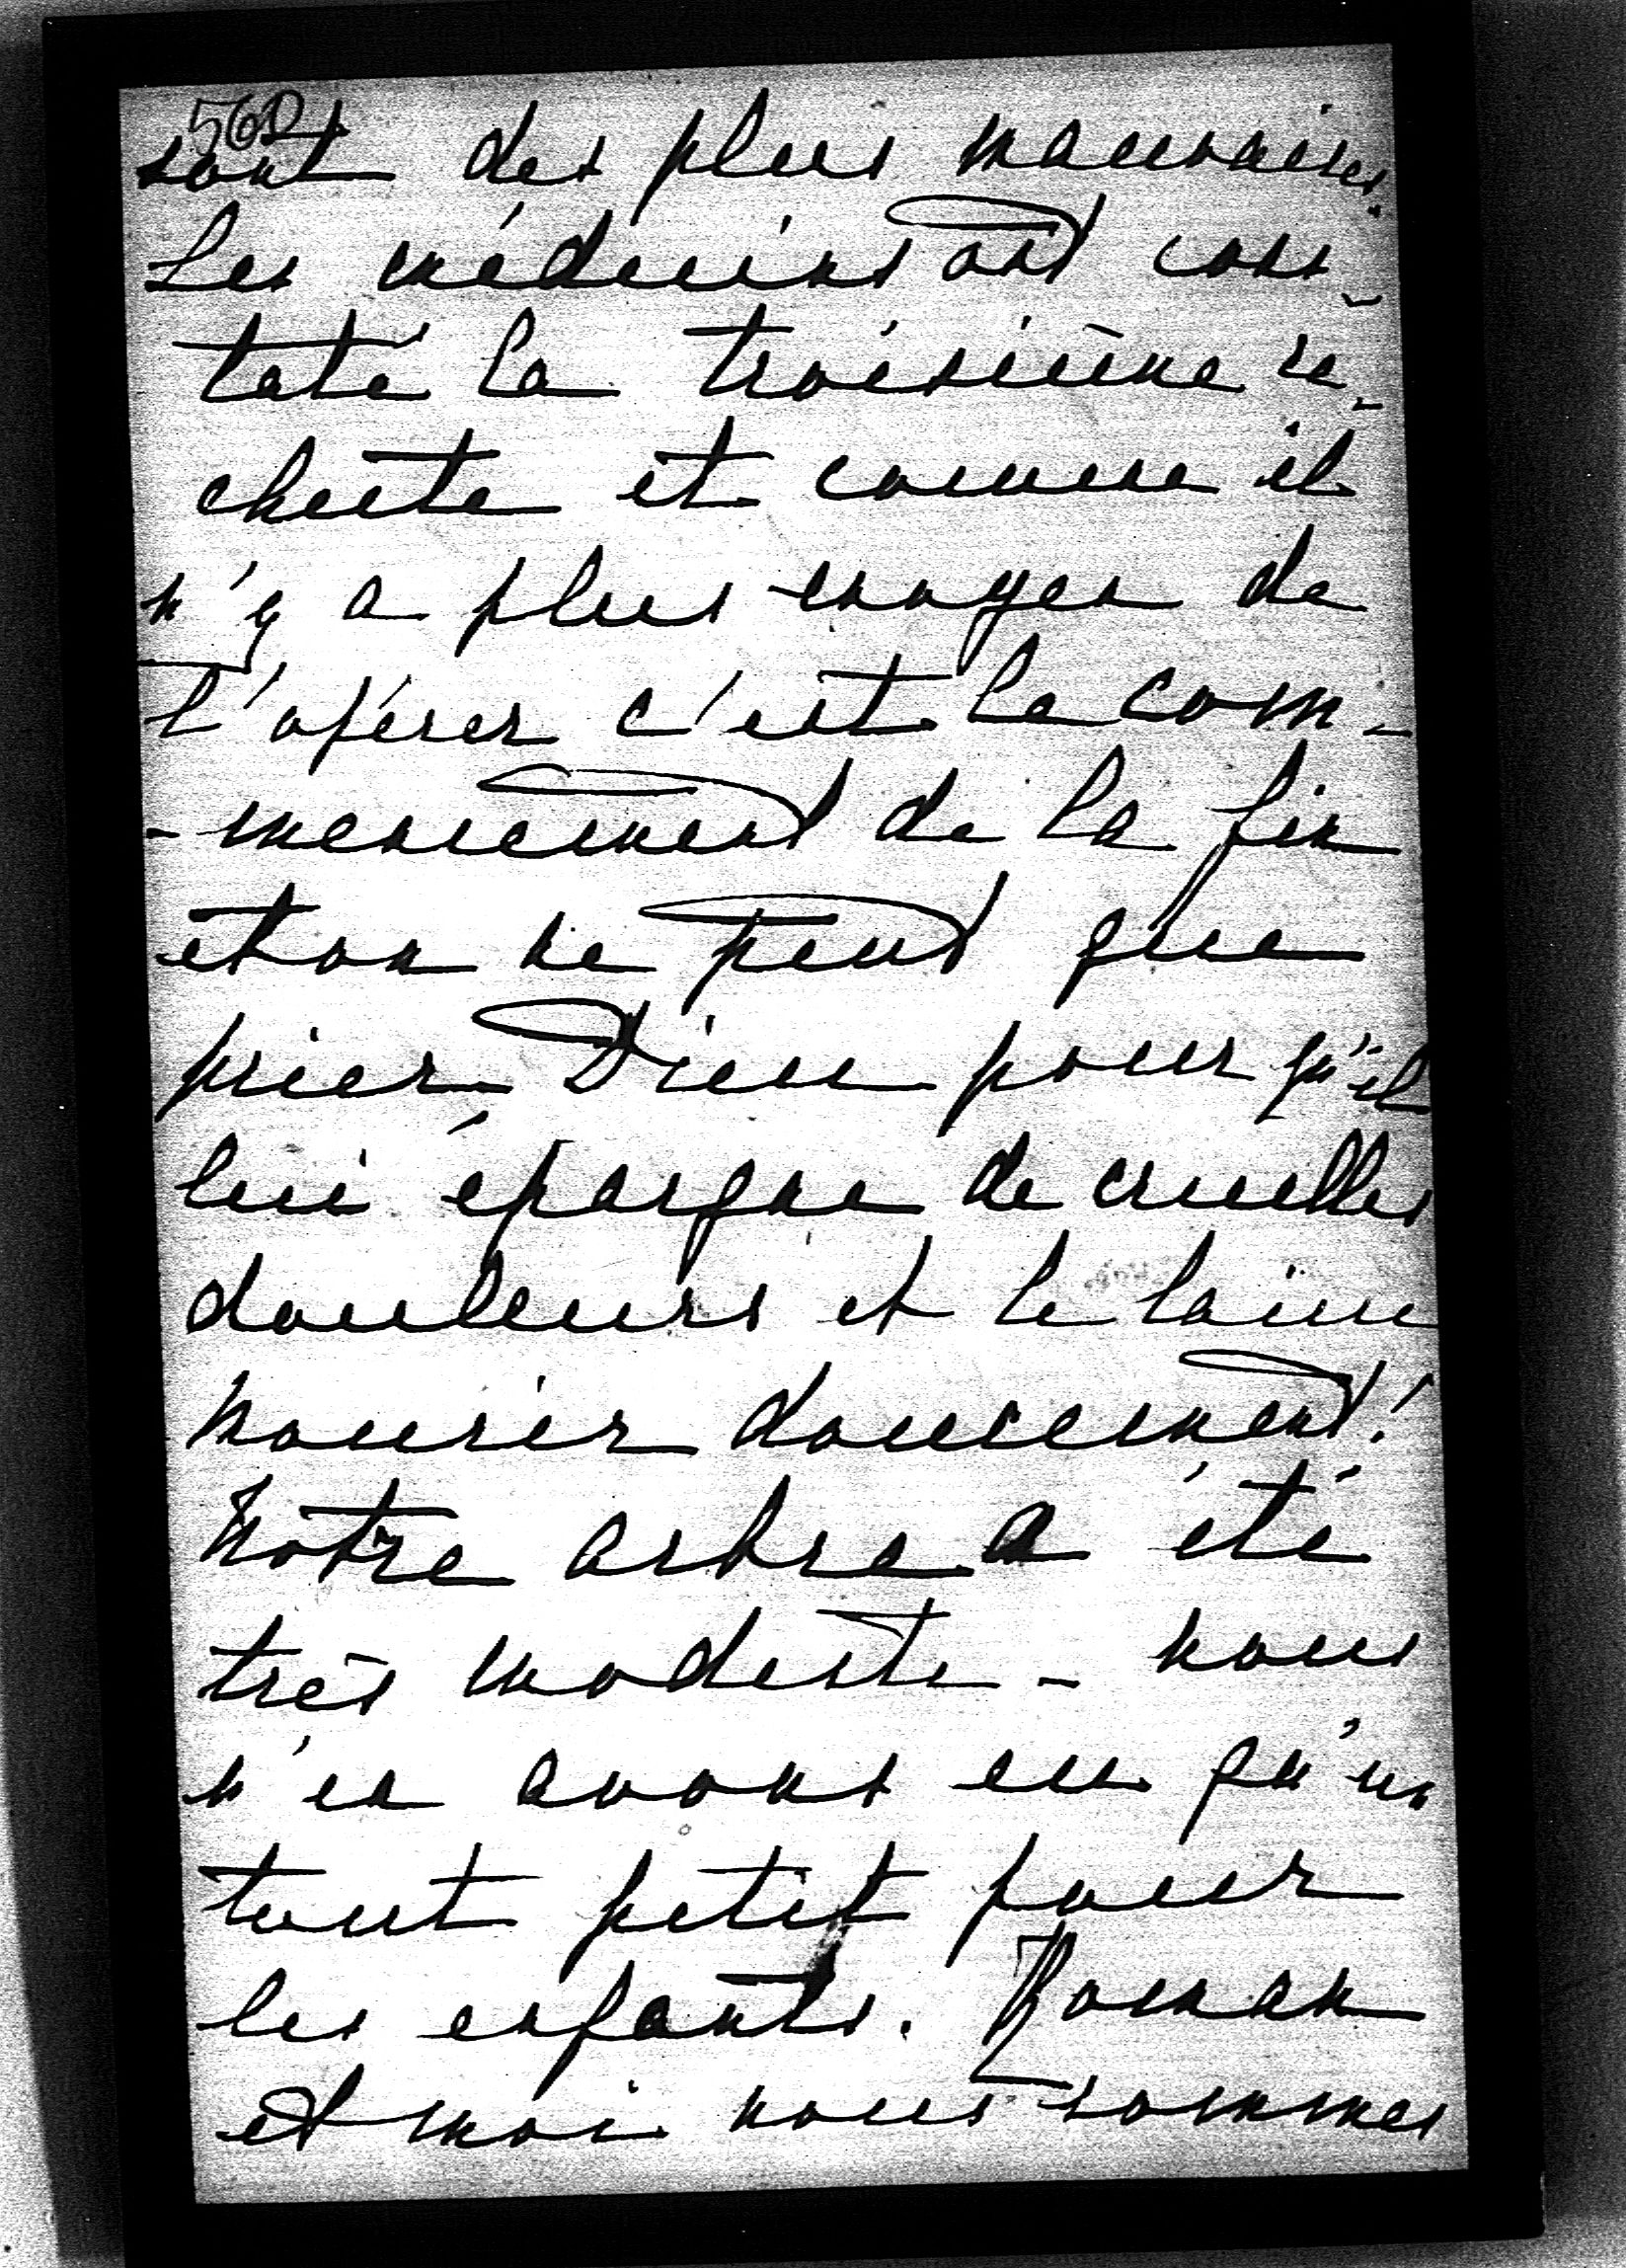 560
sont des plus mauvaises.
Les médecins ont cons-
taté la troisième re-
chute et comme il
n'y a plus moyen de
l'opérer c'est le com-
-mencement de la fin
et on ne peut que
prier Dieu pour qu'il
lui épargne de cruelles
douleurs et le laisse
mourir doucement!
Notre arbre a été
très modeste - nous
n'en avons eu qu'un
tout petit pour
les enfants. Roman
et moi nous sommes